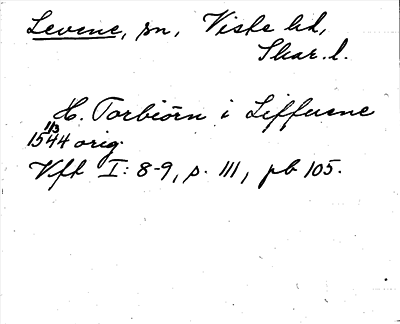 Levene, sn, Viste hd,
Skar. l.
H. Torbiörn i Liffuene
1/3
1544 orig.
Vft I: 8-9, s. 111, pb 105.